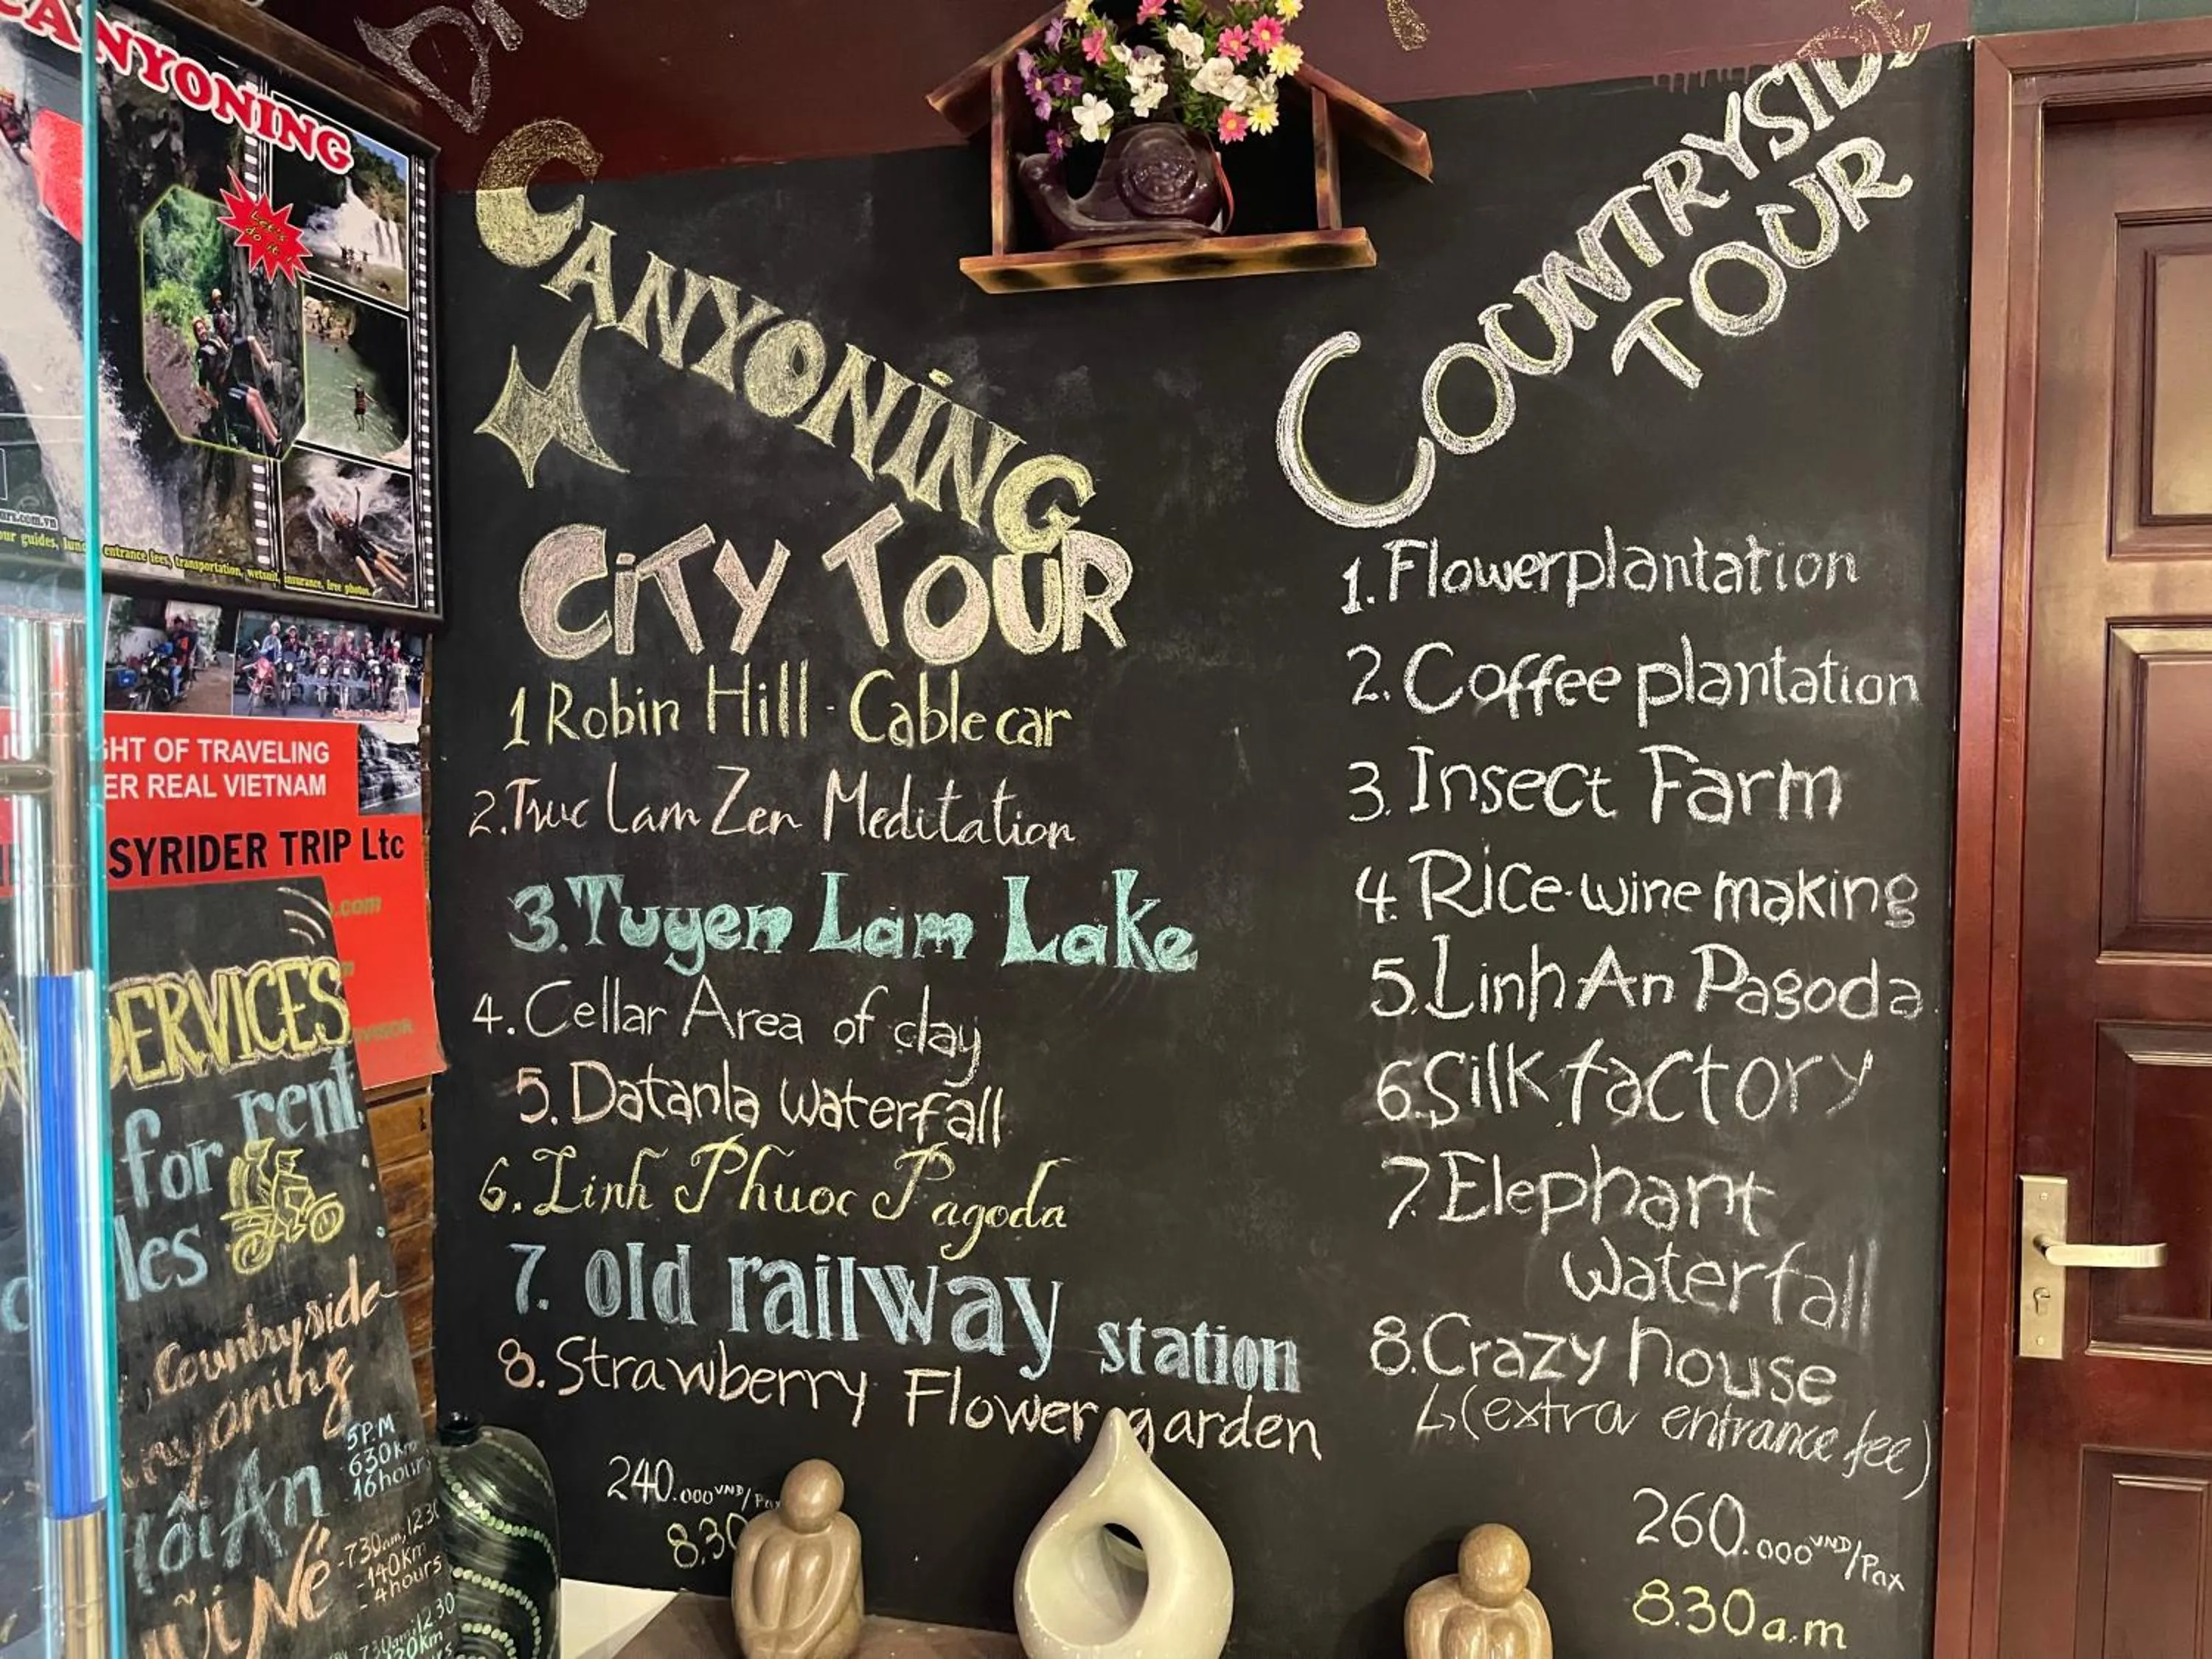 CANYONING
Let's
do it!
entrance fees, transportation, wetsuit, insurance, free photos
OF TRAVELING
REAL VIETNAM
TRIP Ltc
.com
SERVICES
for rent
Countryside
Hội An
5P.M
630km
16hours
Mũi Né
-7.30am, 12.30
-140Km
-4hours
CANYONING
CITY TOUR
1 Robin Hill - Cable car
2. Truc Lam Zen Meditation
3. Tuyen Lam Lake
4. Cellar Area of clay
5. Datanla waterfall
6. Linh Phuoc Pagoda
7. old railway station
8. Strawberry Flower garden
240.000 VND/Pax
8.30
COUNTRYSIDE
TOUR
1. Flowerplantation
2. Coffee plantation
3. Insect Farm
4. Rice-wine making
5. Linh An Pagoda
6. Silk factory
7. Elephant
waterfall
8. Crazy house
↳ (extra entrance fee)
260.000 VND/Pax
8.30a.m